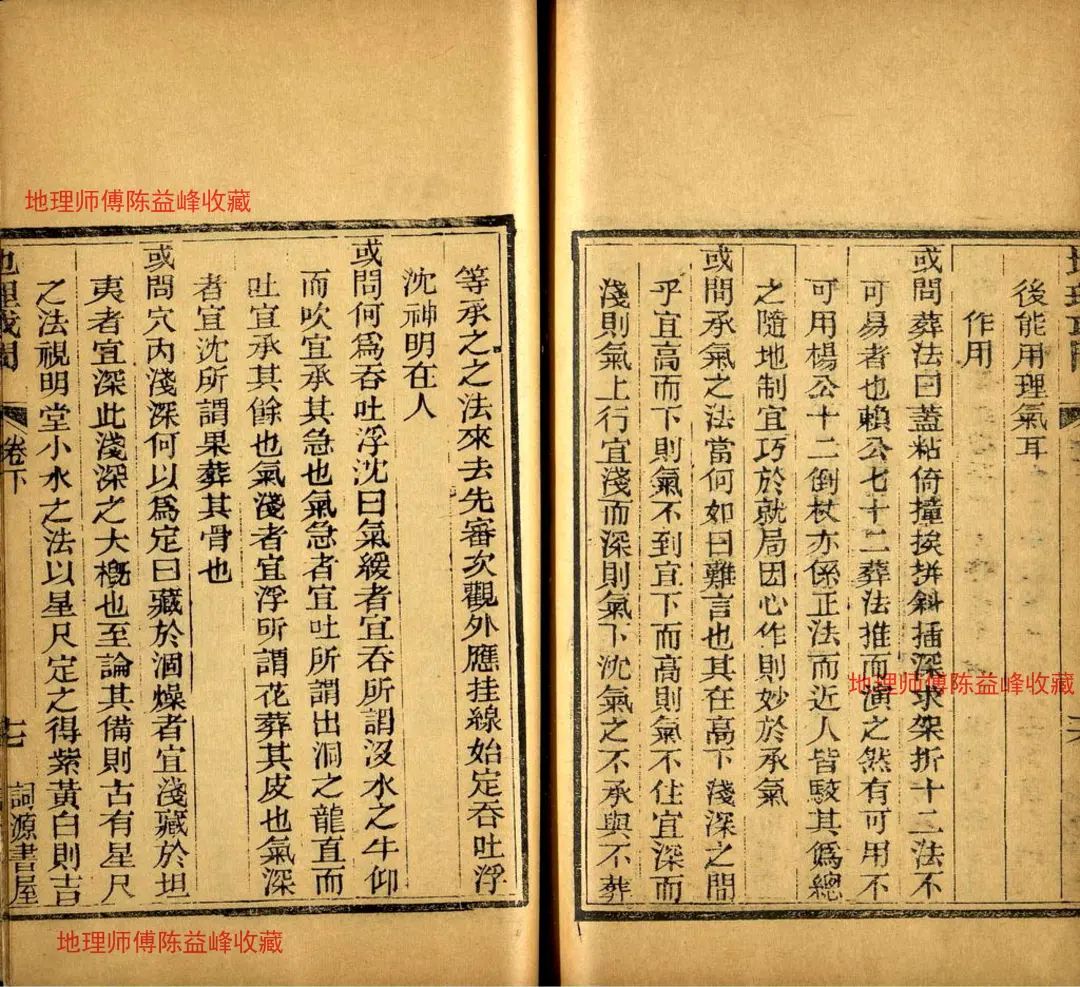 後能用理氣耳
作用
或問葬法曰蓋粘倚撞挨拼斜插深求架折十二法不
可易者也賴公七十二葬法推而演之然有可用不
可用楊公十二倒杖亦係正法而近人皆駮其僞總
之隨地制宜巧於就局因心作則妙於承氣
或問承氣之法當何如曰難言也其在高下淺深之間
乎宜高而下則氣不到宜下而高則氣不住宜深而
淺則氣上行宜淺而深則氣下沈氣之不承與不葬
等承之之法來去先審次觀外應挂線始定吞吐浮
沈神明在人
或問何爲吞吐浮沈曰氣緩者宜吞所謂沒水之牛仰
而吹宜承其急也氣急者宜吐所謂出洞之龍直而
吐宜承其餘也氣淺者宜浮所謂花葬其皮也氣深
者宜沈所謂果葬其骨也
或問穴內淺深何以爲定曰藏於涸燥者宜淺藏於坦
夷者宜深此淺深之大槪也至論其備則古有星尺
之法視明堂小水之法以星尺定之得紫黃白則吉
地理或問 卷下 十七 詞源書屋
地理师傅陈益峰收藏
地理师傅陈益峰收藏
地理师傅陈益峰收藏